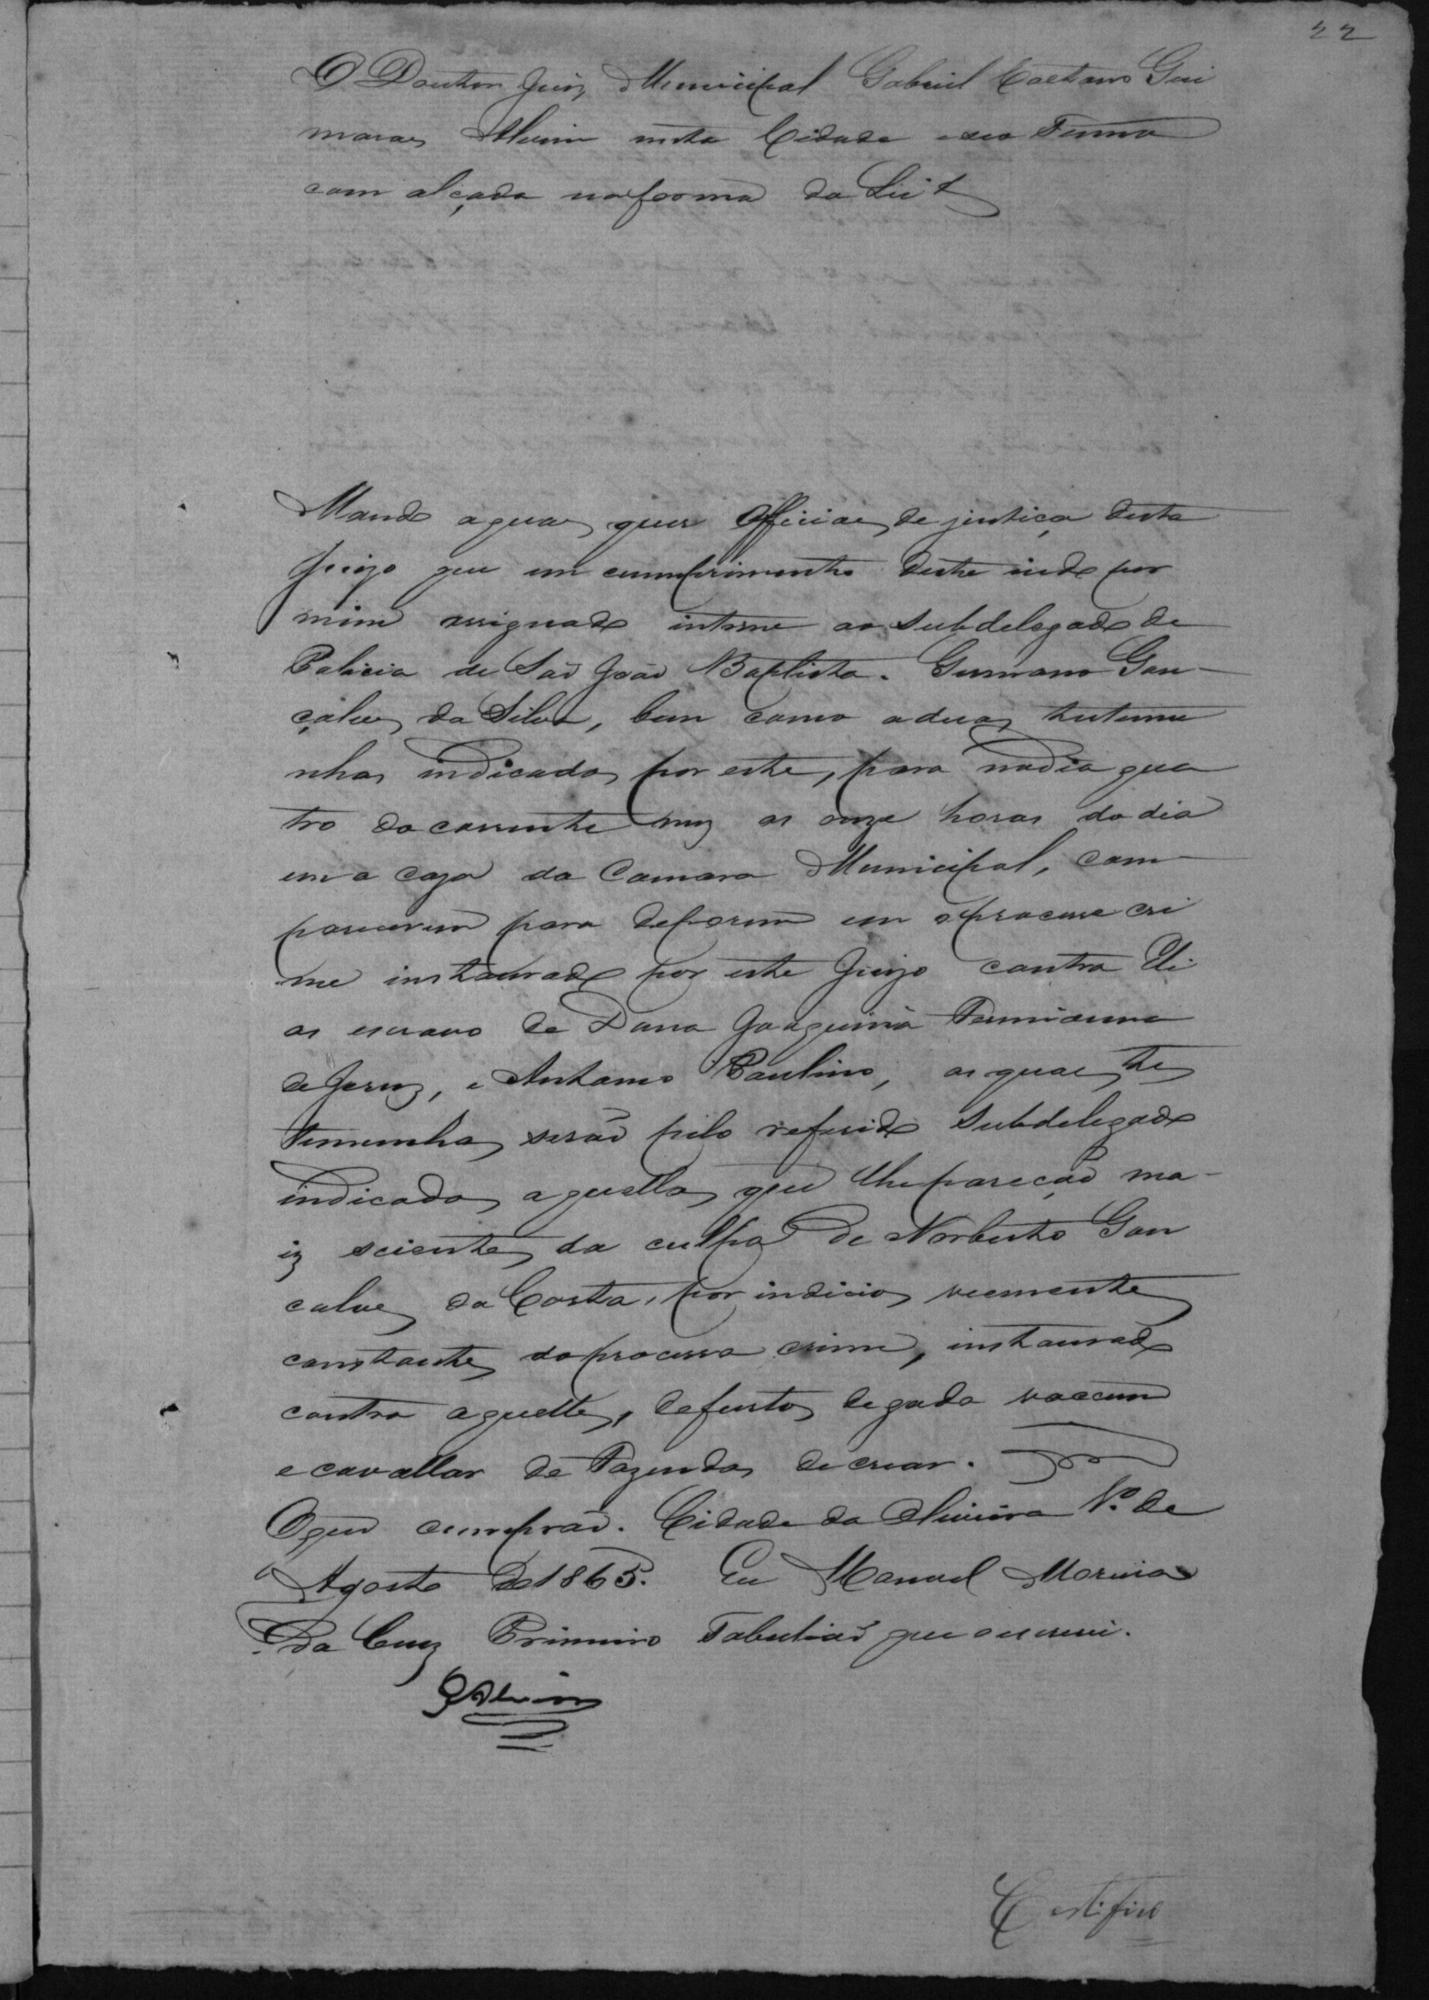 22
O Doutor Juiz Municipal Gabriel Caetano Gui
maraes Alvim nesta Cidade e seo Termo
com alçada na forma da Lei &
Mando a quaes quer Officiaes de justiça deste
Juizo que em cumprimento deste indo por
mim assignado intime ao Subdelegado de
Policia de São João Baptista. Germano Gon-
çalves da Silva, bem como a duas testemu
nhas indicadas por este, para no dia qua
tro do corrente mez as onze horas do dia
em a caza da Camara Municipal, com-
parecerem para deporem em o processe cri
me instaurado por este Juizo contra Eli
as escravo de Dona Joaquina
de Jesus, e Antonio Paulino, as quaes tes
temunhas serão pelo referido Subdelegado
indicadas aquellas que lhe pareção ma-
iz scientes da culpa de Norberto Gon
calves da Costa, por indicios veementes
constantes do processo crime, instaurado
contra aquelles, de furtos de gado vaccum
e cavallar de Fazendas de crear.
O que cumprão. Cidade da Oliveira 1º de
Agosto de 1865. Eu Manoel Moreira
da Cruz Primeiro Tabelião que o escrevi.
GAlvim
Certifico